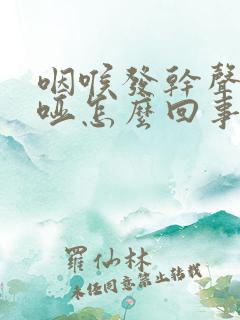 咽喉發幹聲
啞怎麼回事
羅仙林
未经同意禁止转载